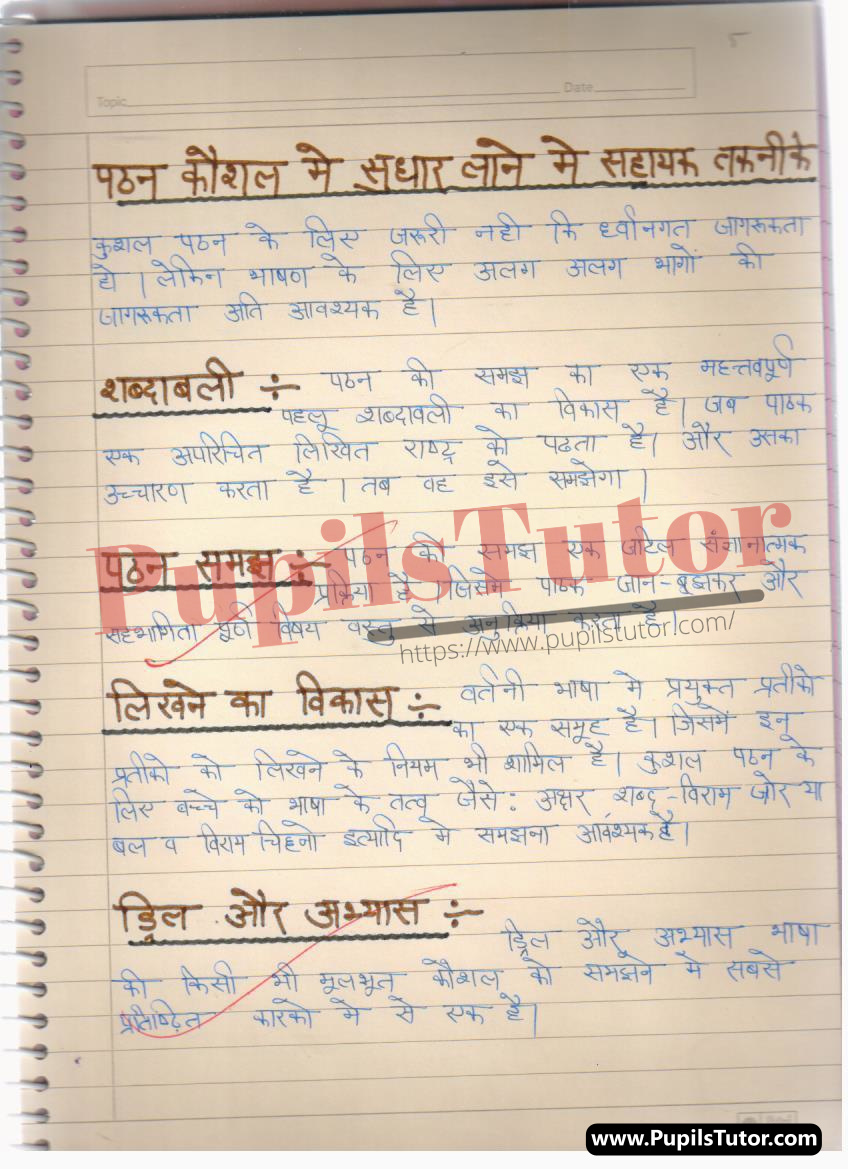 5
Topic Date
पठन कौशल मे सुधार लाने मे सहायक तकनीके
कुशल पठन के लिए जरूरी नही कि ध्वनिगत जागरूकता
हो । लेकिन भाषण के लिए अलग अलग भागों की
जागरूकता अति आवश्यक है।
शब्दाबली ÷ पठन की समझ का एक महत्त्वपूर्ण
पहलू शब्दावली का विकास है। जब पाठक
एक अपरिचित लिखित राष्ट्र को पढता है। और उसका
उच्चारण करता है । तब वह इसे समझेगा ।
पठन समझ ÷ पठन की समझ एक जटिल संज्ञानात्मक
प्रक्रिया है । जिसमे पाठक जान-बुझकर और
सहभागिता पूर्ण विषय वस्तु से अनुक्रिया करता है।
PupilsTutor
https://www.pupilstutor.com/
लिखने का विकास ÷ वर्तनी भाषा मे प्रयुक्त प्रतीको
का एक समूह है। जिसमें इन
प्रतीको को लिखने के नियम भी शामिल है। कुशल पठन के
लिए बच्चे को भाषा के तत्व जैसे: अक्षर शब्द-विराम जोर या
बल व विराम चिहनो इत्यादि मे समझना आवश्यक है।
ड्रिल और अभ्यास ÷
ड्रिल और अभ्यास भाषा
की किसी भी मूलभूत कौशल को समझने मे सबसे
प्रतिष्ठित कारको मे से एक है।
www.PupilsTutor.com